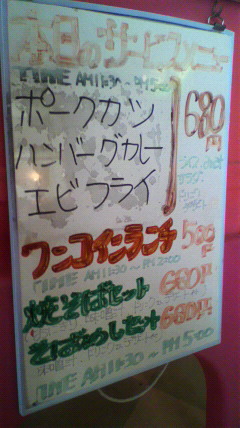 本日のサービスメニュー
TIME AM11:30 ~ PM5:00
ポークカツ
ハンバーグカレー
エビフライ
680円
ワンコインランチ 500円
TIME AM11:30 ~ PM2:00
焼そばセット 680円
そばめしセット 680円
TIME AM11:30 ~ PM5:00